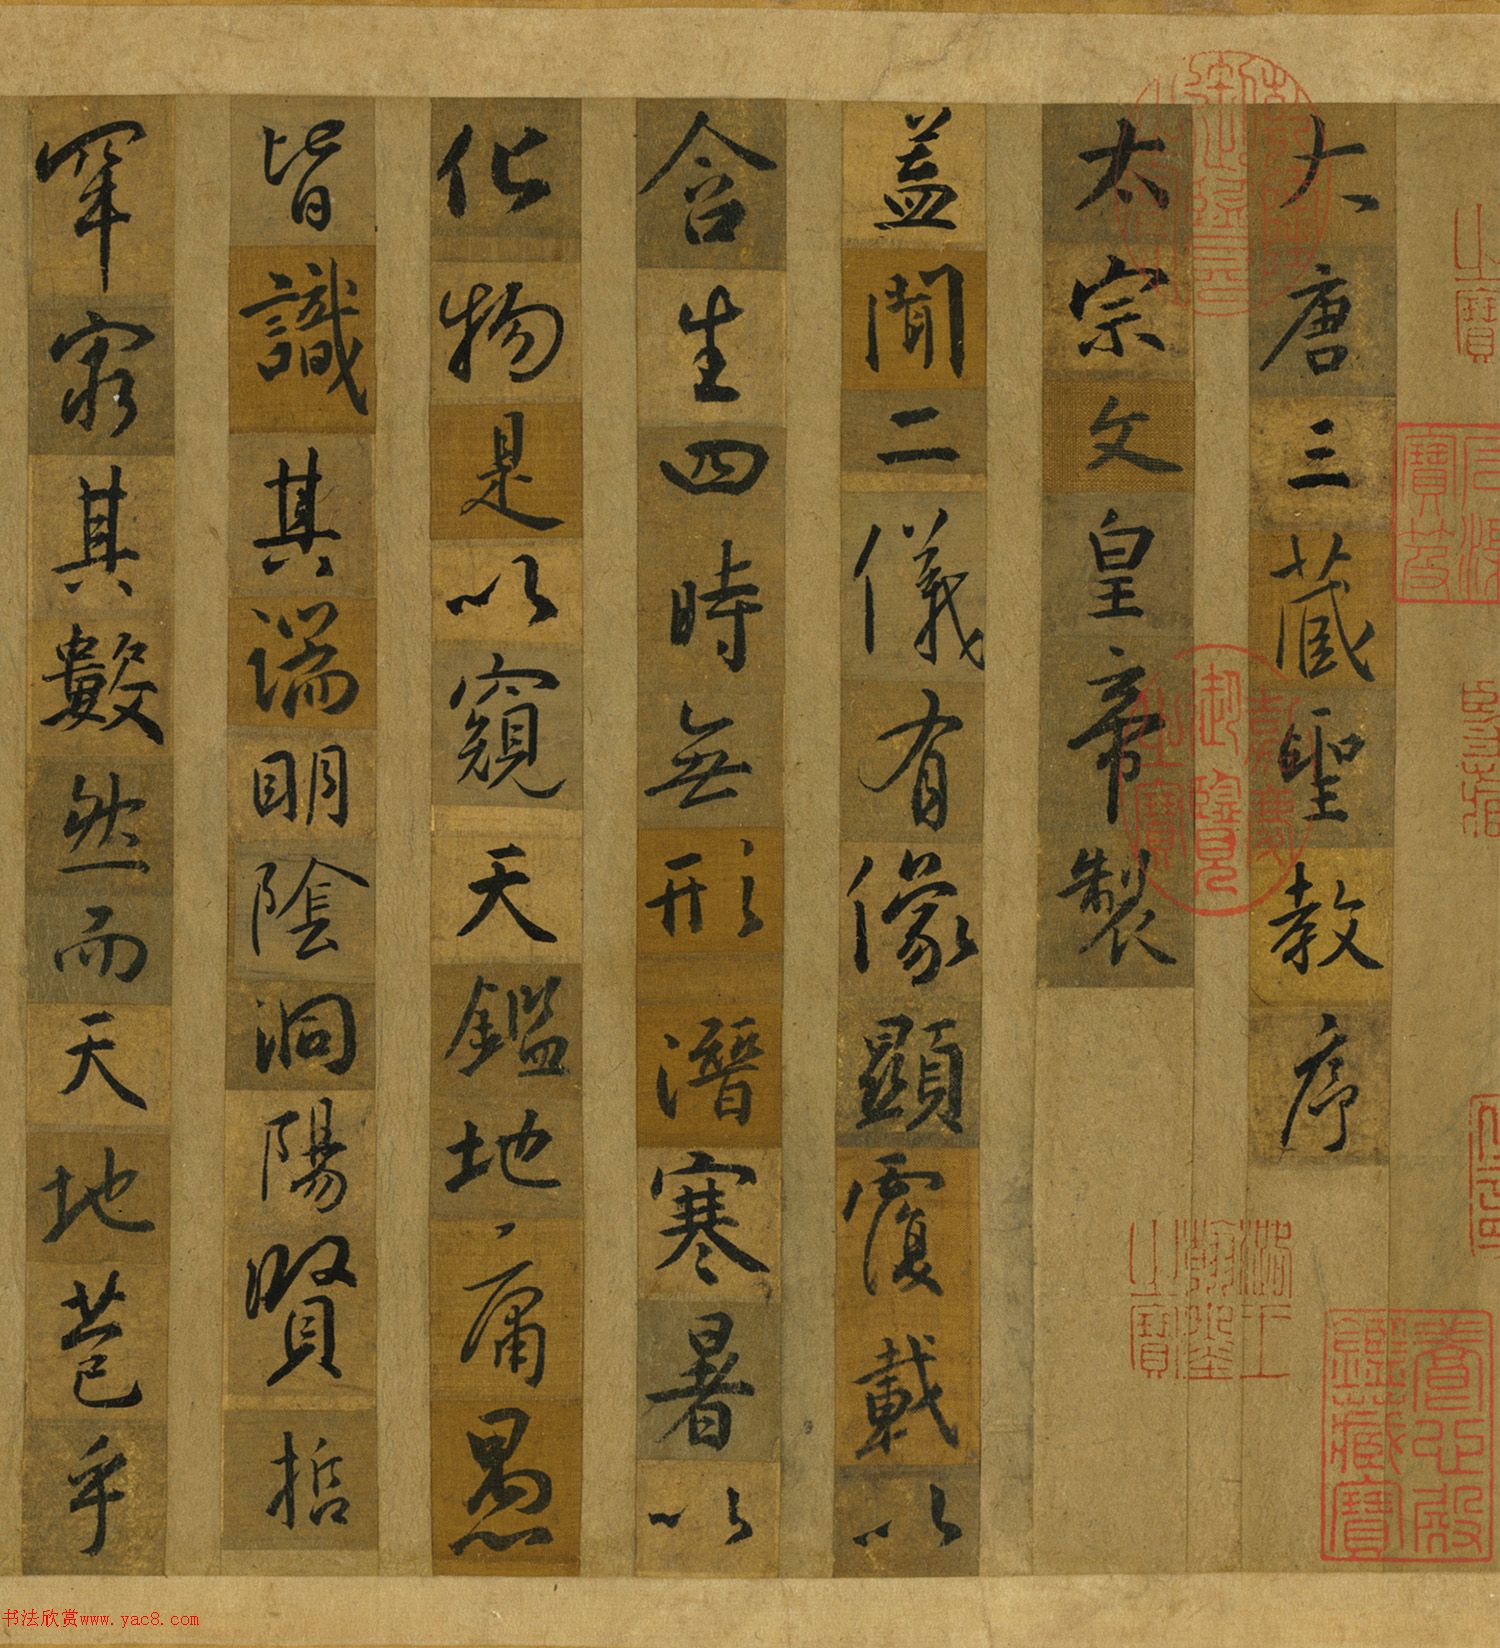 大唐三藏聖教序
太宗文皇帝製
蓋聞二儀有像顯覆載以
含生四時無形潛寒暑以
化物是以窺天鑑地庸愚
皆識其端明陰洞陽賢哲
罕窮其數然而天地苞乎
之寶
石渠寶笈
嘉慶御覽之寶
養心殿鑑藏寶
书法欣赏www.yac8.com